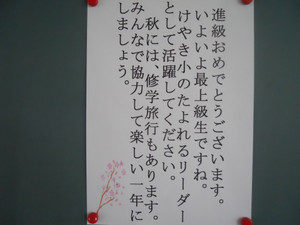 進級おめでとうございます。
いよいよ最上級生ですね。
けやき小のたよれるリーダー
として活躍してください。
秋には、修学旅行もあります。
みんなで協力して楽しい一年に
しましょう。